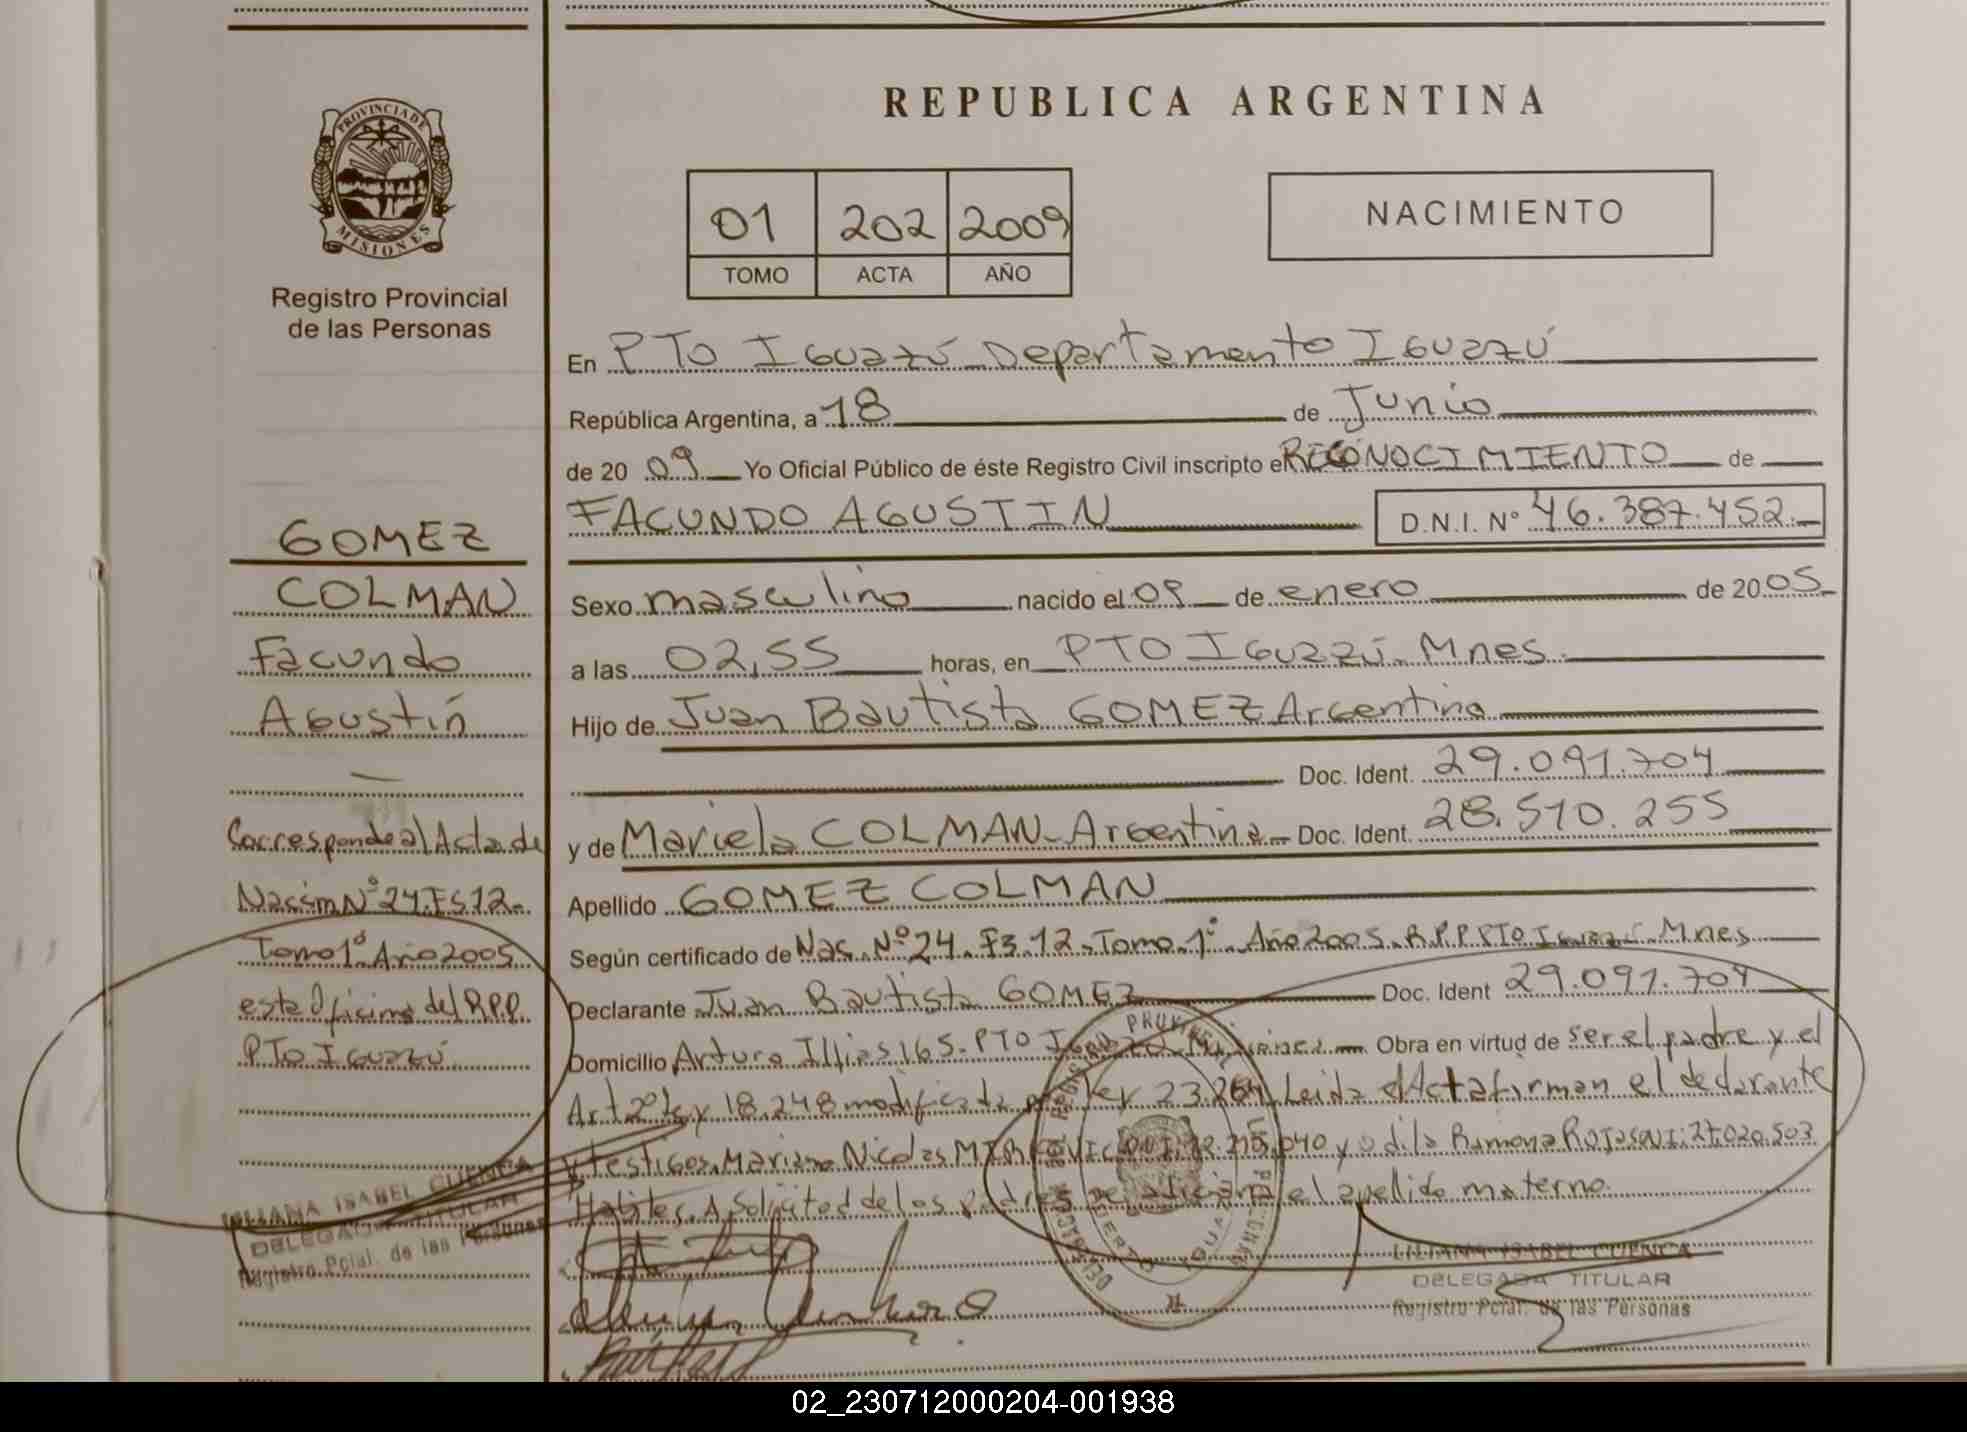 PROVINCIA DE
MISIONES
Registro Provincial
de las Personas
GOMEZ
COLMAN
Facundo
Agustín
Corresponde al Acta de
Nacim Nº 24. Fs 12.
Tomo 1º Año 2005
esta Oficina del R.P.P.
PTO IGUAZÚ.
LILIANA ISABEL CUENCA
DELEGADA TITULAR
Registro Pcial. de las Personas
REPUBLICA ARGENTINA
01 202 2009
TOMO ACTA AÑO
NACIMIENTO
En PTO IGUAZÚ Departamento IGUAZÚ
República Argentina, a 18 de Junio
de 20 09 Yo Oficial Público de éste Registro Civil inscripto el RECONOCIMIENTO de
FACUNDO AGUSTIN D.N.I. Nº 46.387.452.
Sexo masculino nacido el 09 de enero de 2005
a las 02,55 horas, en PTO IGUAZÚ. Mnes.
Hijo de Juan Bautista GOMEZ Argentino
Doc. Ident. 29.091.704
y de Mariela COLMAN - Argentina - Doc. Ident. 28.510.255
Apellido GOMEZ COLMAN
Según certificado de Nas. Nº 24. Fs. 12. Tomo. 1º. Año 2005. R.P.P PTO Iguazú. Mnes
Declarante Juan Bautista GOMEZ Doc. Ident 29.091.704
Domicilio Arturo Illias 165. PTO Iguazú. Misiones Obra en virtud de ser el padre y el
Art 2º Ley 18.248 modificada por Ley 23.264, Leida el Acta firman el declarante
y testigos. Mariano Nicolas y Odila Ramona Rojas DNI: 27.020.503
Habiles. A Solicitud de los padres se adiciona el apellido materno.
LILIANA ISABEL CUENCA
DELEGADA TITULAR
Registro Pcial. de las Personas
02_230712000204-001938